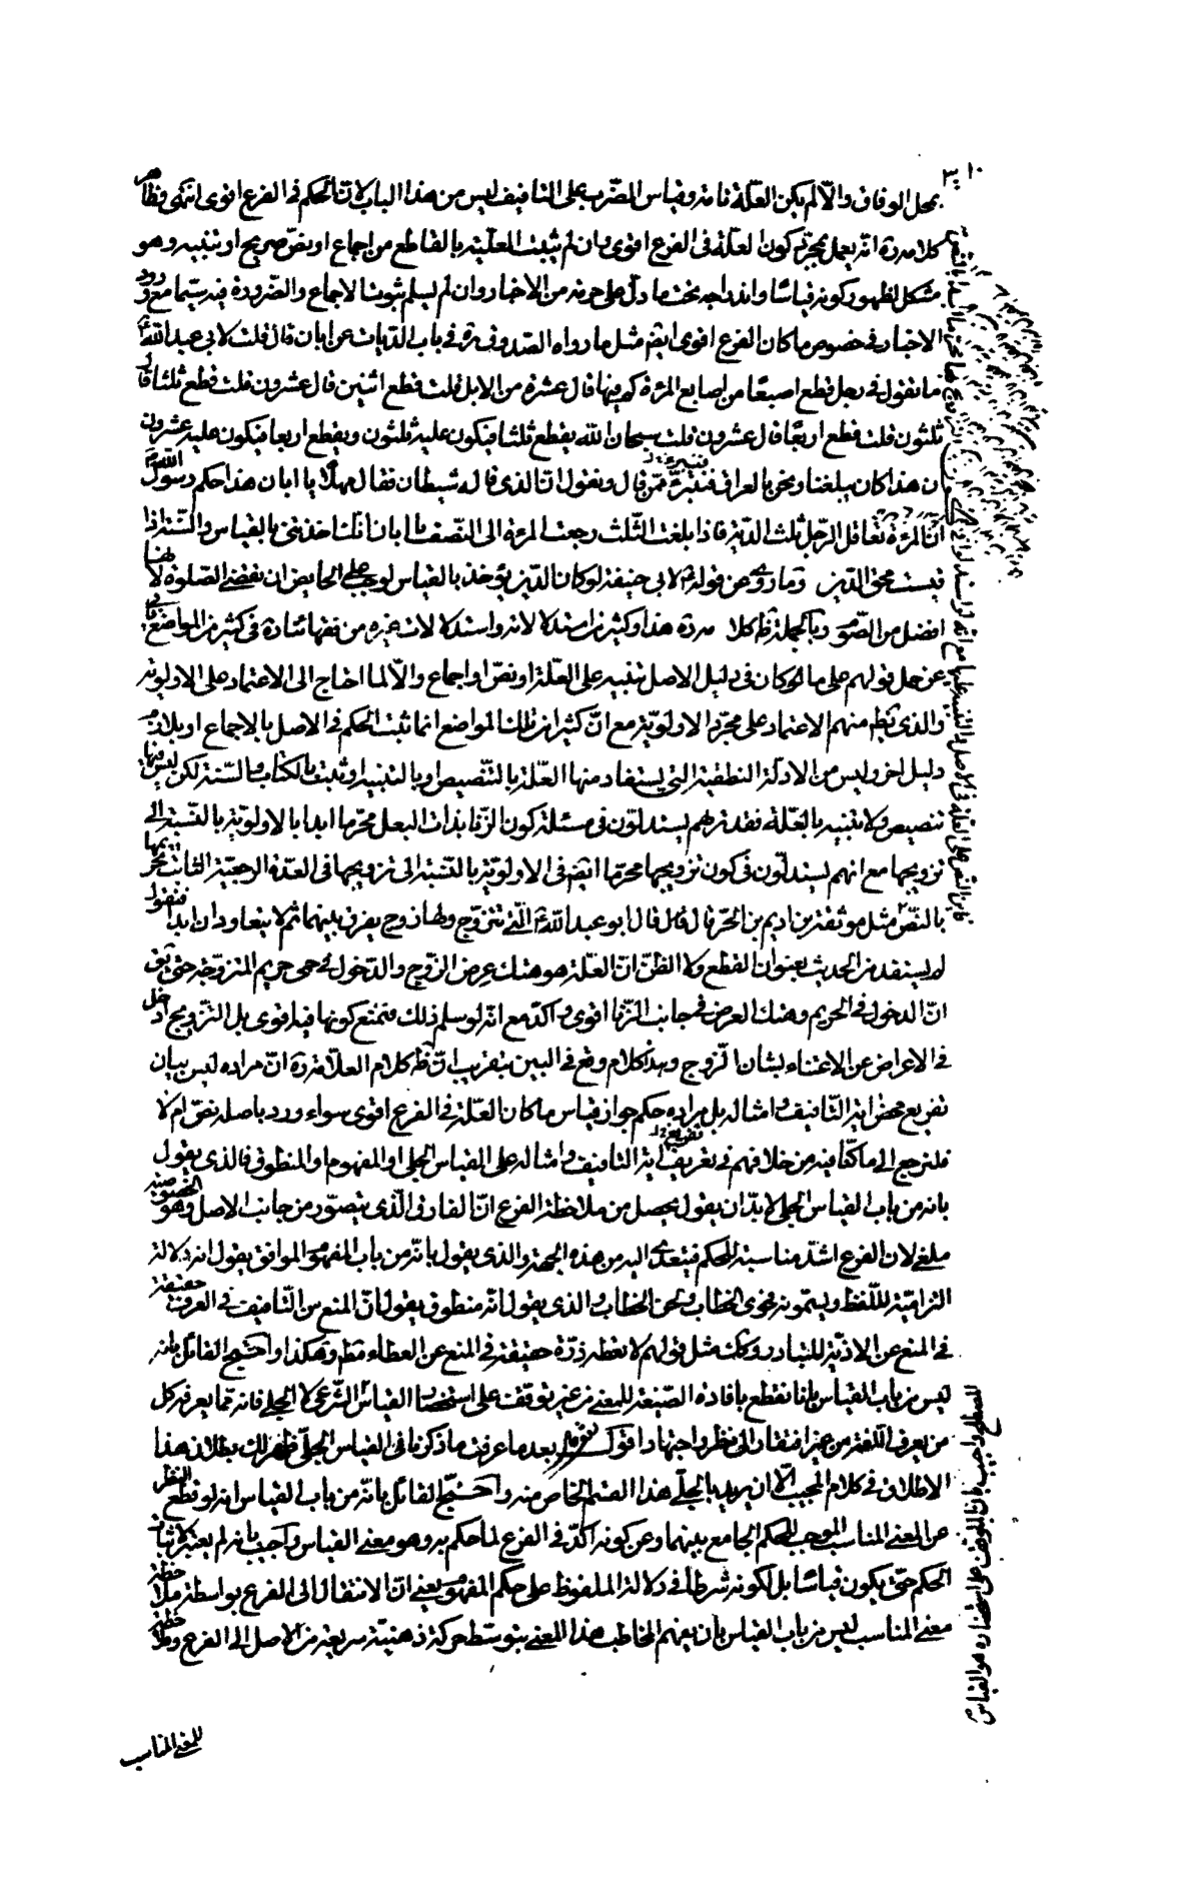 محل الوفاق والّا لم يكن العلّة تامة وقياس الضّرب على التافيف ليس من هذا الباب لانّ الحكم فى الفرع اقوى انتهى فظاهر
كلامه ره انّه يعمل بمجرّد كون العلّة فى الفرع اقوى وان لم يثبت العلّية بالقاطع من اجماع او نصّ صريح او تنبيه وهو
مشكل لظهور كونه قياسًا واندراجه تحت ما دلّ على حرمته من الاخبار وان لم نسلم ثبوت الاجماع والضّرورة فيه سيّما مع ورود
الاخبار فى خصوص ما كان الفرع اقوى ايضا مثل ما رواه الصّدوق ره فى باب الدّيات عن ابان قال قلت لابى عبد اللّه ع
ما تقول فى رجل قطع اصبعًا من اصابع المرءة كم فيها قال عشرة من الابل قلت قطع اثنين قال عشرون قلت قطع ثلثا قال
ثلثون قلت قطع اربعًا قال عشرون قلت سبحان اللّه يقطع ثلثا فيكون عليه ثلثون ويقطع اربعا فيكون عليه عشرون
ان هذا كان يبلغنا ونحن بالعراق فنتبرّء ممّن قال ونقول انّ الذى قاله شيطان فقال مهلًا يا ابان هذا حكم رسول اللّه ص
انّ المرءة تعاقل الرّجل ثلث الدّية فاذا بلغت الثّلث رجعت المرءة الى النّصف يا ابان انّك اخذتنى بالقياس والسّنة اذا
قيست محق الدّين وما روى من قوله ع لابى حنيفة لو كان الدّين يؤخذ بالقياس لوجب على الحايض ان تقضى الصّلوة لانّها
افضل من الصّوم وبالجملة ظ كلامه ره هذا وكثير من استدلالاته واستدلالات غيره من فقهائنا ره فى كثير من المواضع يأبى
عن حمل قولهم على ما لو كان فى دليل الاصل تنبيه على العلّة او نصّ او اجماع والّا لما احتاج الى الاعتماد على الاولوية
والذى يظهر منهم الاعتماد على مجرّد الاولويّة مع انّ كثيرا من تلك المواضع انما ثبت الحكم فى الاصل بالاجماع او بدليل
دليل اخر وليس من الادلّة النطقية التى يستفاد منها العلّة بالتّنصيص او بالتنبيه او ثبت بالكتاب والسّنة لكن ليس فيها
تنصيص ولا تنبيه بالعلّة فقد تريهم يستدلّون فى مسئلة كون الزّنا بذات البعل محرّما ابدا بالاولويّة بالنّسبة الى
تزويجها مع انهم يستدلّون فى كون تزويجها محرّما ايضا فى الاولويّة بالنّسبة الى تزويجها فى العدّة الرجعيّة الثابت تحريمها
بالنّصّ مثل موثقة بن اديم بن الحرّ قال قال ابو عبد اللّه ع الّتى تتزوّج ولها زوج يفرق بينهما ثم لا يتعاودان ابدا فنقول
لم يستفد من الحديث بعنوان القطع ولا الظّنّ انّ العلّة هو هتك عرض الزّوج والدّخول فى حمى حريم المتزوّجة حتى يق
انّ الدخول فى الحريم وهتك العرض فى جانب الزّنا اقوى واكد مع انّه لو سلم ذلك فنمنع كونها فيه اقوى بل التزويج ادخل
فى الاعراض عن الاعتناء بشان الزّوج وهذا كلام وقع فى البين بتقريب انّ ظ كلام العلّامة ره انّ مراده ليس بيان
تفريع محض اية التّافيف وامثاله بل مراده حكم جواز قياس ما كان العلّة فى الفرع اقوى سواء ورد باصله نصّ ام لا
فلنرجع الى ما كنّا فيه من خلافهم فى تفريع اية التافيف وامثاله على القياس الجلى او المفهوم او المنطوق فالذى يقول
بانه من باب القياس الجلى لا بدّ ان يقول يحصل من ملاحظة الفرع انّ الفارق الّذى يتصوّر من جانب الاصل وهو الخصوصية
ملغى لان الفرع اشدّ مناسبة للحكم فيتعدّى اليه من هذه الجهة والذى يقول بانّه من باب المفهوم الموافق يقول انه دلالة
التزاميّة للّفظ ويسمّونه فحوى الخطاب ولحن الخطاب والذى يقول انّه منطوق يقول انّ المنع من التّافيف فى العرف حقيقة
فى المنع عن الاذيّة للتبادر وكك مثل قولهم لا تعطه ذرّة حقيقة فى المنع عن العطاء مط وهكذا واحتج القائل بانه
ليس من باب القياس بانا نقطع بافادة الصّيغة للمعنى من غير توقّف على استحضار القياس الشّرعى لا الجلى فانه ممّا يعرفه كل
من يعرف اللّغة من غير افتقار الى نظر واجتهاد اقول بعد ما عرفت ما ذكرنا فى القياس الجلّى ظهر لك بطلان هذا
الاطلاق فى كلام المجيب الّا ان يريد بالجلّى هذا القسم الخاص منه واحتجّ القائل بانّه من باب القياس انه لو قطع النّظر
عن المعنى المناسب الموجب للحكم الجامع بينهما وعن كونه اكدّ فى الفرع لما حكم به وهو معنى القياس واجيب بانه لم يعتبر لاثبات
الحكم حتى يكون قياسًا بل لكونه شرطا فى دلالة الملفوظ على حكم المفهوم يعنى انّ الانتقال الى الفرع بواسطة ملاحظة
معنى المناسب ليس من باب القياس بان يفهم المخاطب هذا المعنى بتوسّط حركة ذهنيّة سريعة من الاصل الى الفرع وملاحظة
للمعنى المناسب
المصطلح واجيب بان المتوقف على استحضاره هو القياس